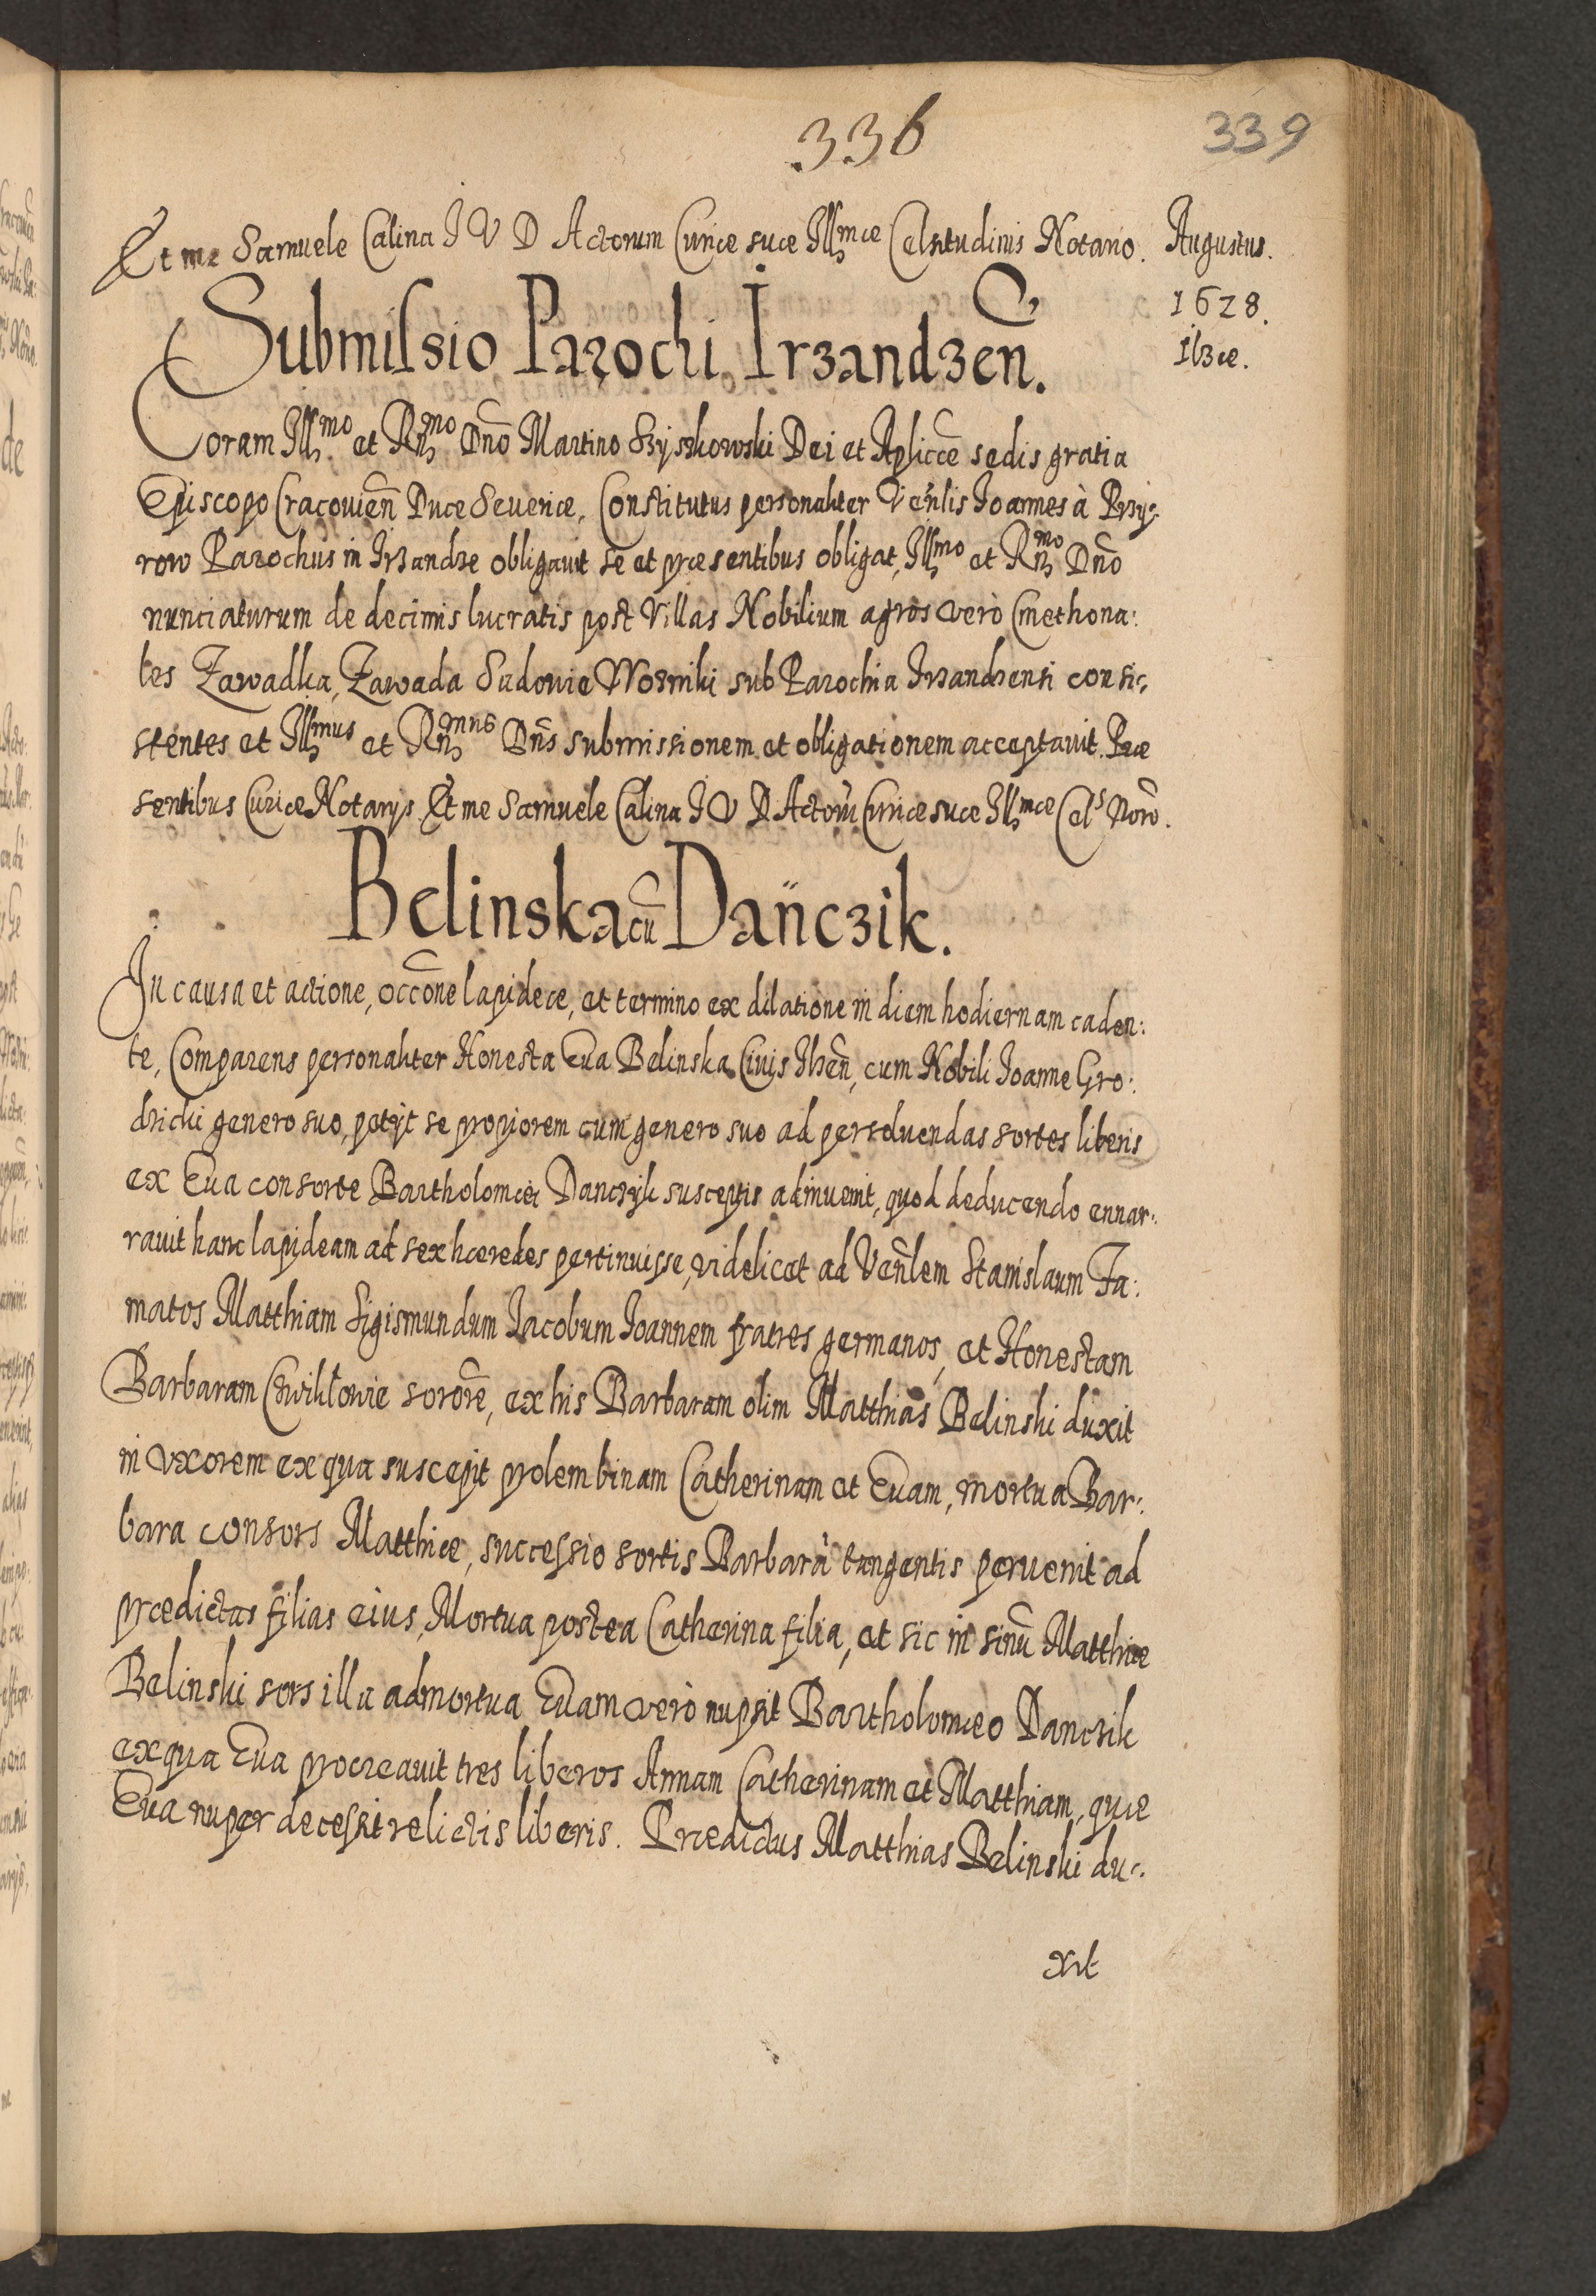 336
339
Et me Samuele Calina I V D Actorum Curiæ suæ Illmæ Celsitudinis Notario.
Augustus.
1628.
Ilzæ.
Submissio Parochi Irzandzen.
Coram Illmo et Rńmo Dńo Martino Szyszkowski Dei et Aplicæ sedis gratia
Episcopo Cracouień Duce Seueriæ, Constitutus personaliter Venlis Ioannes à Przy:
row Parochus in Irzandze obligauit se et præsentibus obligat, Illmo et Rńmo Dńo
nunciaturum de decimis lucratis post Villas Nobilium agros verò Cmethona:
les Zawadka, Zawada Sudowie Wozniki sub Parochia Irzandzensi consi:
stentes et Illmus et Rńmus Dńs submissionem et obligationem acceptauit. Præ
sentibus Curiæ Notarys Et me Samuele Calina I V D Actorũ Curiæ suæ Illmæ Cels Norõ.
Belinska cũ Dańczik.
In causa et actione, occõne lapideæ, et termino ex dilatione in diem hodiernam caden:
te, Comparens personaliter Honesta Eua Belinska Ciuis Ilzeń, cum Nobili Ioanne Gro:
dzicki genero suo, petijt se propiorem cum genero suo ad persoluendas sortes liberis
ex Eua consorte Bartholomæi Danczyk susceptis adinuenit, quod deducendo ennar:
rauit hanc lapideam ad sex hæredes pertinuisse, videlicet ad Venlem Stanislaum Fa:
matos Matthiam Sigismundum Iacobum Ioannem fratres germanos, et Honestam
Barbaram Cwiklowie sororẽ, ex his Barbaram olim Matthias Belinski duxit
in vxorem ex qua suscepit prolem binam Catherinam et Euam, mortua Bar:
bara consors Matthiæ, successio sortis Barbarã tangentis peruenit ad
prædictas filias eius, Mortua postea Catherina filia, et sic in sinũ Matthiæ
Belinski sors illa admortua Euam verò nupsit Bartholomæo Danczik
ex qua Eua procreauit tres liberos Annam Catherinam et Matthiam, quæ
Eua nuper decessit relictis liberis. Prædictus Matthias Belinski du:
xit